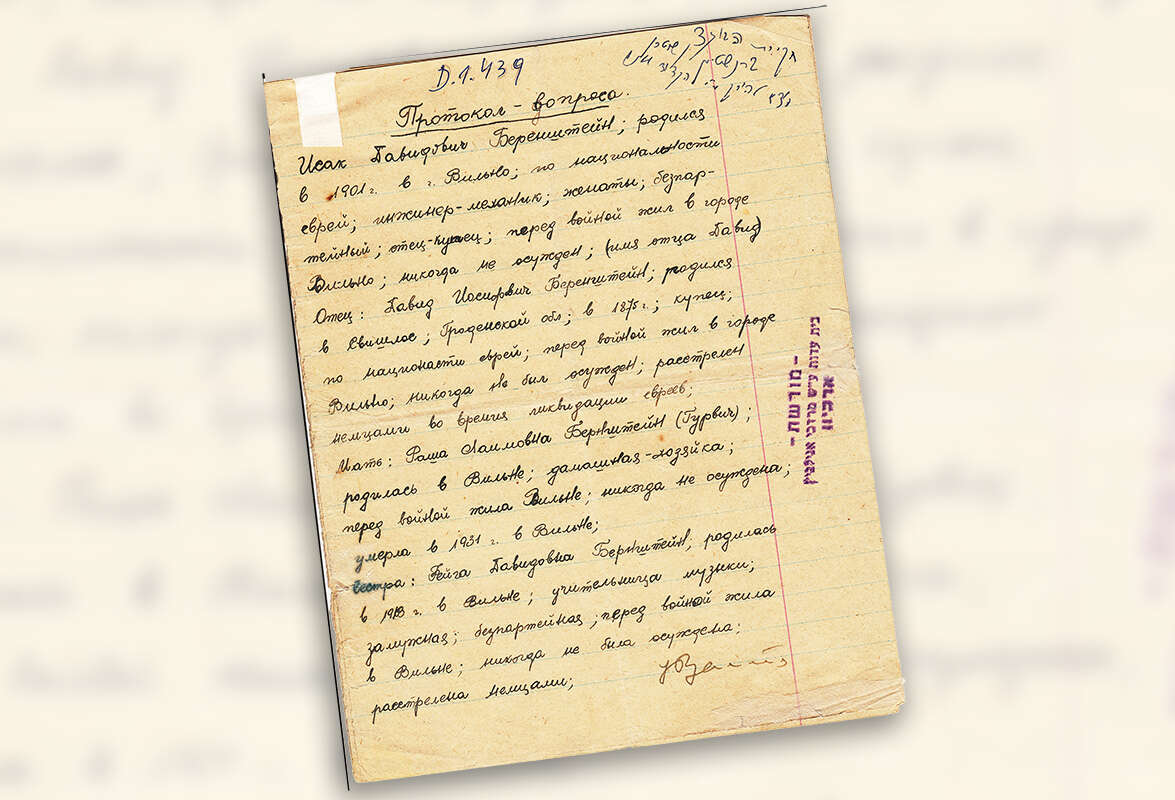 D.1.439
Протокол - вопроса.
Исак Давидович Беренштейн; родился
в 1901 г. в г. Вильно; по национальности
еврей; инжинер-механик; женаты; безпар-
тейный; отец-купец; перед войной жил в городе
Вильно; никогда не осужден; (имя отца Давид)
Отец: Давид Иосифович Беренштейн; родился
в Свишлос; Гроденской обл; в 1875 г.; купец;
по национасти еврей; перед войной жил в городе
Вильно; никогда не был осужден; расстрелен
немцами во время ликвидации евреев;
Мать: Раша Хаимовна Бернштейн (Гурвич);
родилась в Вильне; дамашная-хозяйка;
перед войной жила Вильне; никогда не осуждена;
умерла в 1931 г. в Вильне;
Сестра: Гейга Давидовна Бернштейн, родилась
в 1918 г. в Вильне; учительница музыки;
замужная; безпартейная; перед войной жила
в Вильне; никогда не была осуждена;
расстрелена немцами;
ארכיון
בית עדות ע"ש מרדכי אנילביץ
- מורשת -